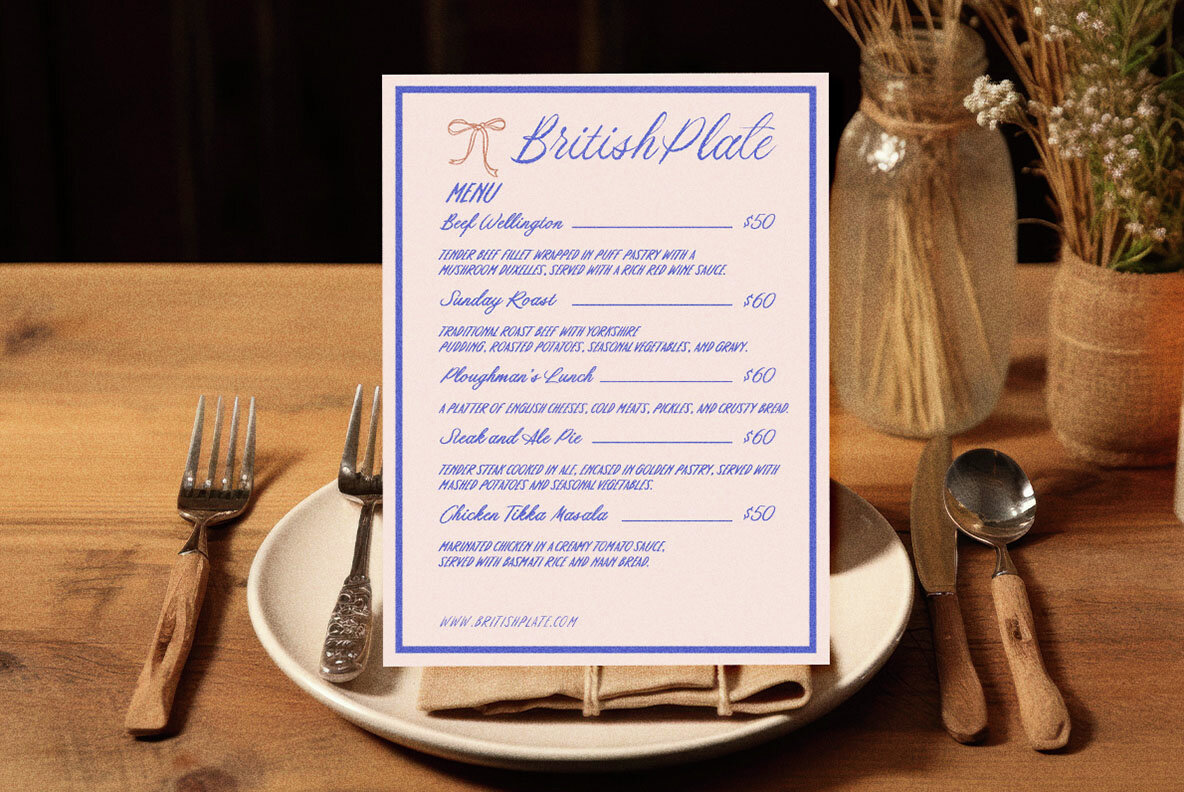 British Plate
MENU
Beef Wellington $50
TENDER BEEF FILLET WRAPPED IN PUFF PASTRY WITH A
MUSHROOM DUXELLES, SERVED WITH A RICH RED WINE SAUCE.
Sunday Roast $60
TRADITIONAL ROAST BEEF WITH YORKSHIRE
PUDDING, ROASTED POTATOES, SEASONAL VEGETABLES, AND GRAVY.
Ploughman's Lunch $60
A PLATTER OF ENGLISH CHEESES, COLD MEATS, PICKLES, AND CRUSTY BREAD.
Steak and Ale Pie $60
TENDER STEAK COOKED IN ALE, ENCASED IN GOLDEN PASTRY, SERVED WITH
MASHED POTATOES AND SEASONAL VEGETABLES.
Chicken Tikka Masala $50
MARINATED CHICKEN IN A CREAMY TOMATO SAUCE,
SERVED WITH BASMATI RICE AND NAAN BREAD.
WWW.BRITISHPLATE.COM